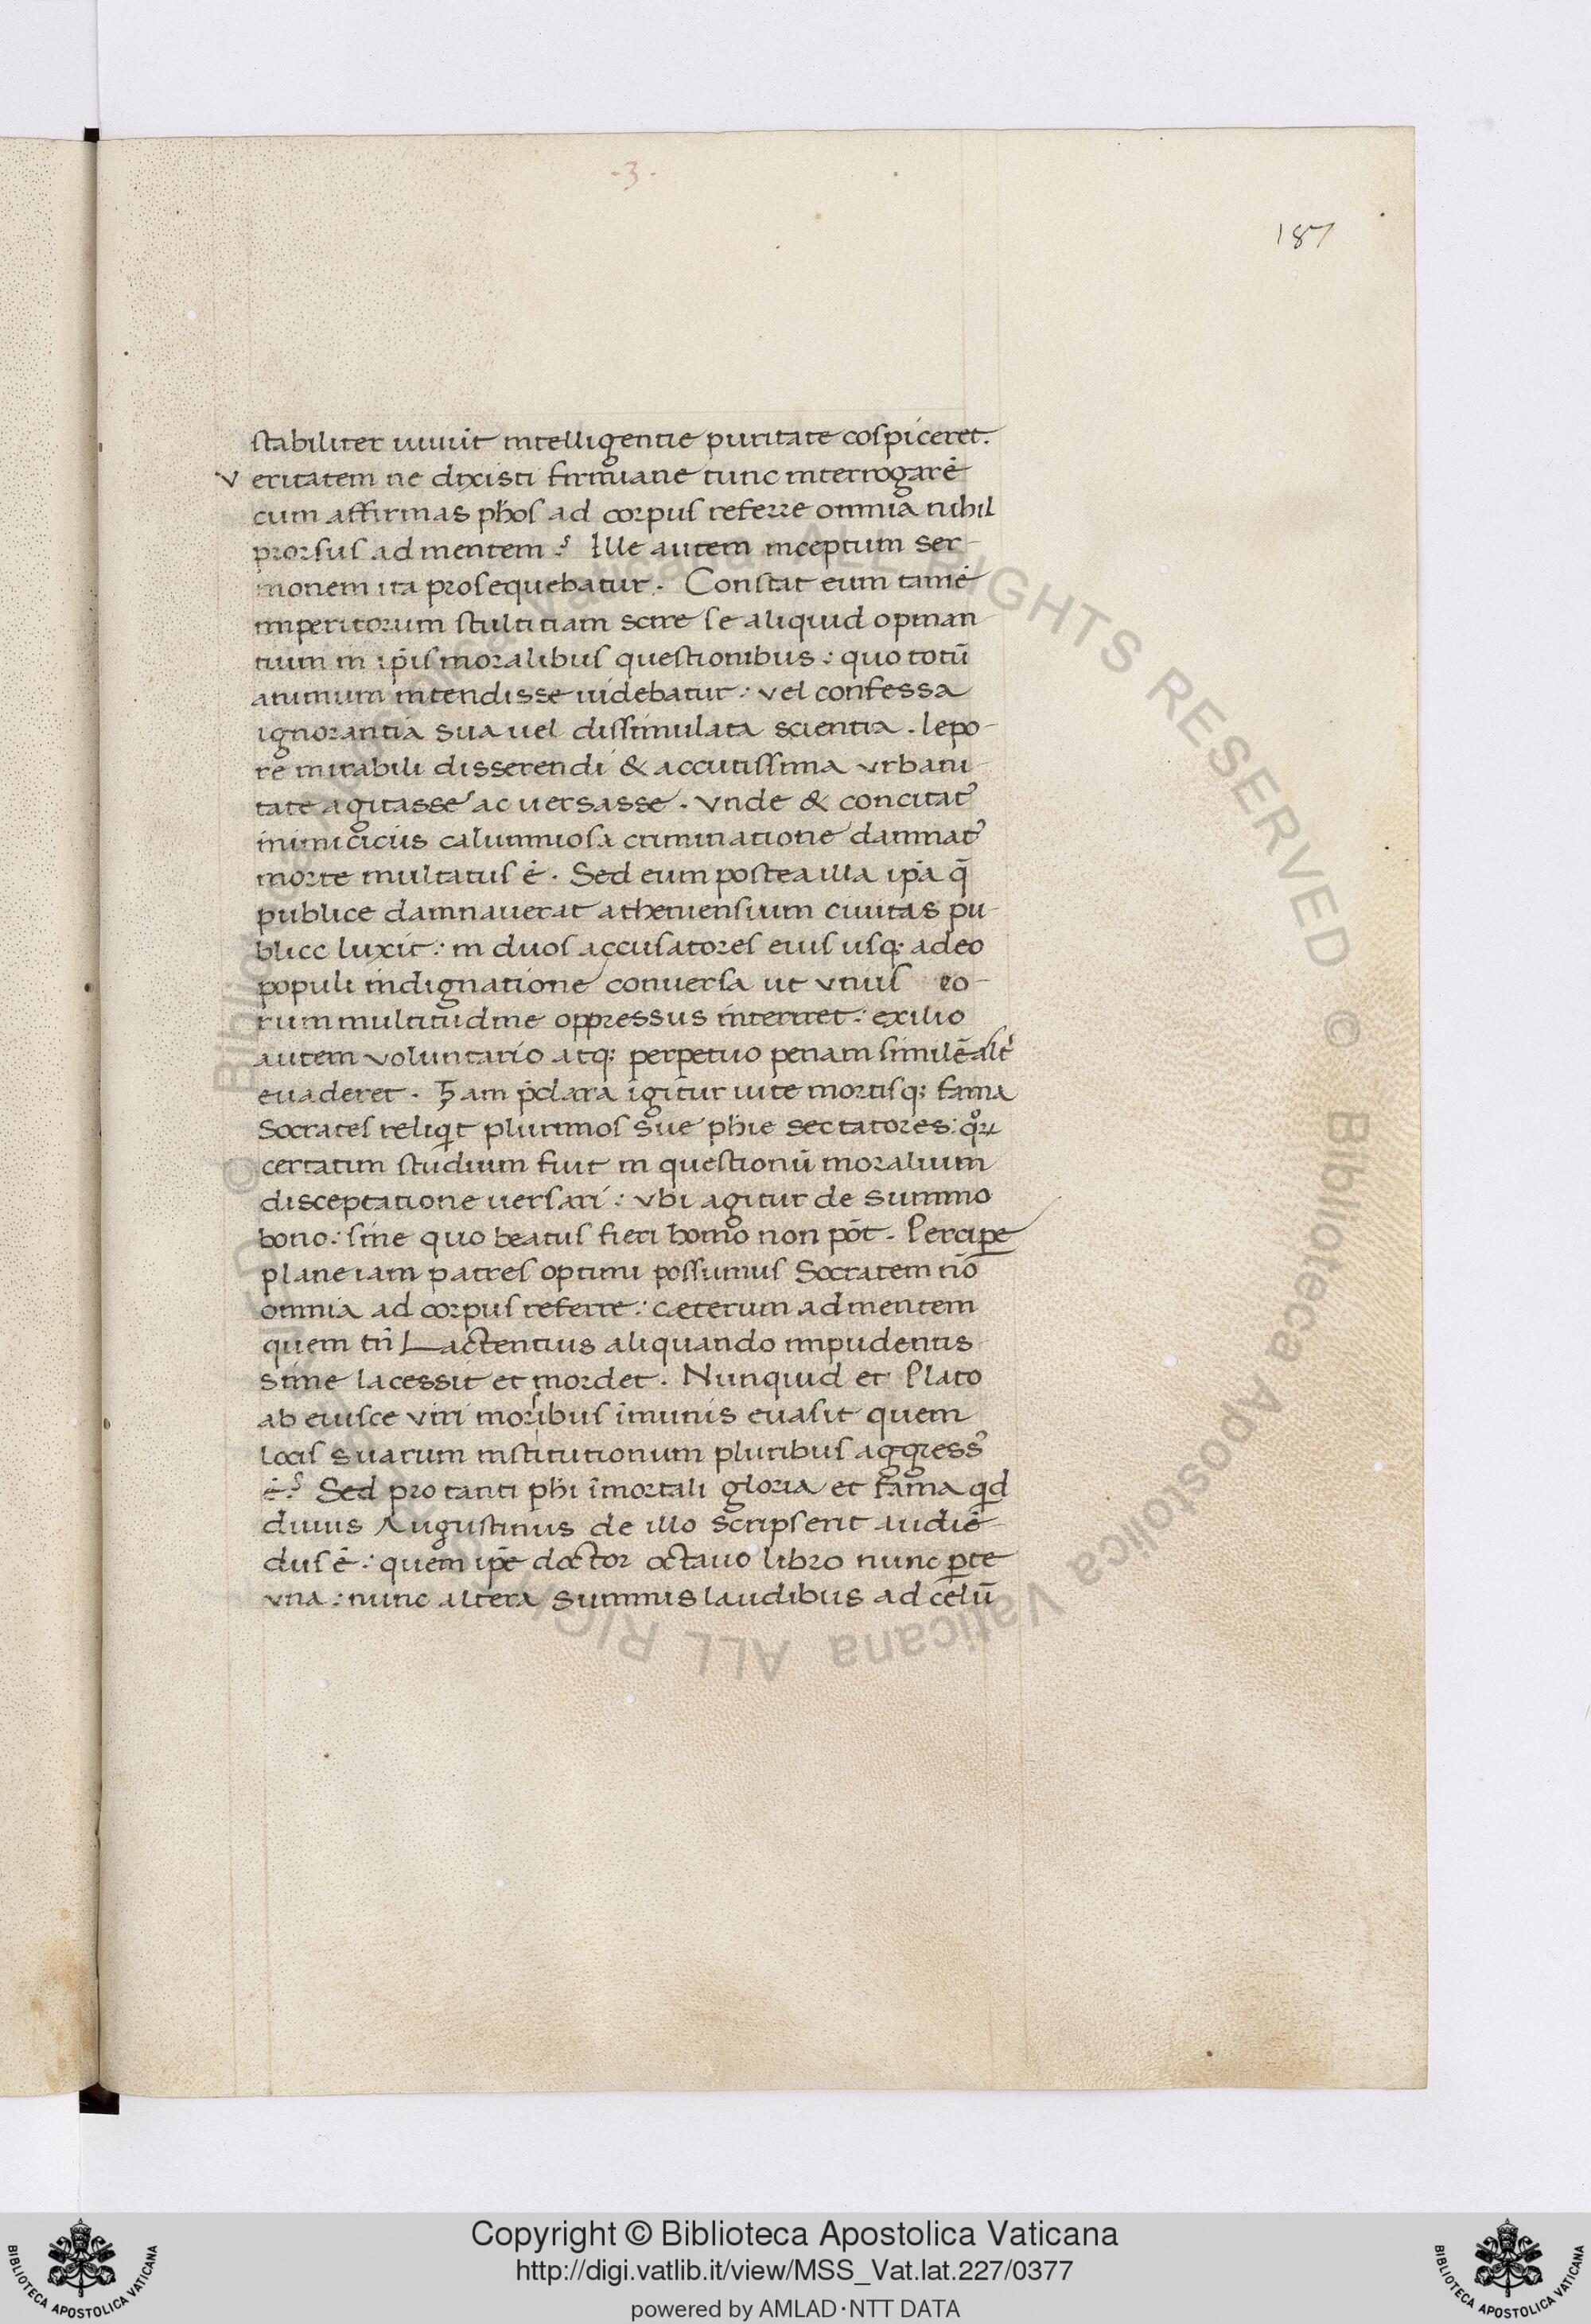 -3-
187
stabiliter uiuūt intelligentie puritate cōspiceret.
Veritatem ne dixisti firmiane tunc interrogarē
cum affirmas phōs ad corpus referre omnia nihil
prorsus ad mentem? Ille autem inceptum ser-
monem ita prosequebatur. Constat eum tamē
imperitorum stultitiam scire se aliquid opinan
tium in ip̄is moralibus questionibus: quo totū
animum intendisse uidebatur: vel confessa
ignorantia sua uel dissimulata scientia. lepo-
re mirabili disserendi & accutissima vrbani-
tate agitasse ac uersasse. vnde & concitat᾽
inimiciciis calumniosa criminatione damnat᾽
morte multatus ē. Sed eum postea illa ip̄a q̄
publice damnauerat atheniensium ciuitas pu-
blice luxit: in duos accusatores eius usq; adeo
populi indignatione conuersa ut vnus eo-
rum multitudine oppressus interiret: exilio
autem voluntario atq; perpetuo penam similē alt᾽
euaderet. Tam p̄clara igitur uite mortisq; fama
Socrates reliqit plurimos sue phie sectatores: qoꝝ
certatim studium fuit in questionū moralium
disceptatione uersari: vbi agitur de summo
bono: sine quo beatus fieri homo non pōt. Percipe
plane iam patres optimi possumus Socratem nō
omnia ad corpus referre: cæterum ad mentem
quem tn̄ Lactentius aliquando impudentis-
sime lacessit et mordet. Nunquid et Plato
ab eiusce viri morsibus īmunis euasit quem
locis suarum institutionum pluribus aggress᾽
ē? Sed pro tanti phi īmortali gloria et fama qid
diuus Augustinus de illo scripserit audiē-
dus ē: quem ip̄e doctor octauo libro nunc ꝑte
vna: nunc altera summis laudibus ad celū
© Biblioteca Apostolica Vaticana ALL RIGHTS RESERVED © Biblioteca Apostolica Vaticana ALL RIGHTS RESERVED
Copyright © Biblioteca Apostolica Vaticana
http://digi.vatlib.it/view/MSS_Vat.lat.227/0377
powered by AMLAD·NTT DATA
BIBLIOTECA APOSTOLICA VATICANA
BIBLIOTECA APOSTOLICA VATICANA